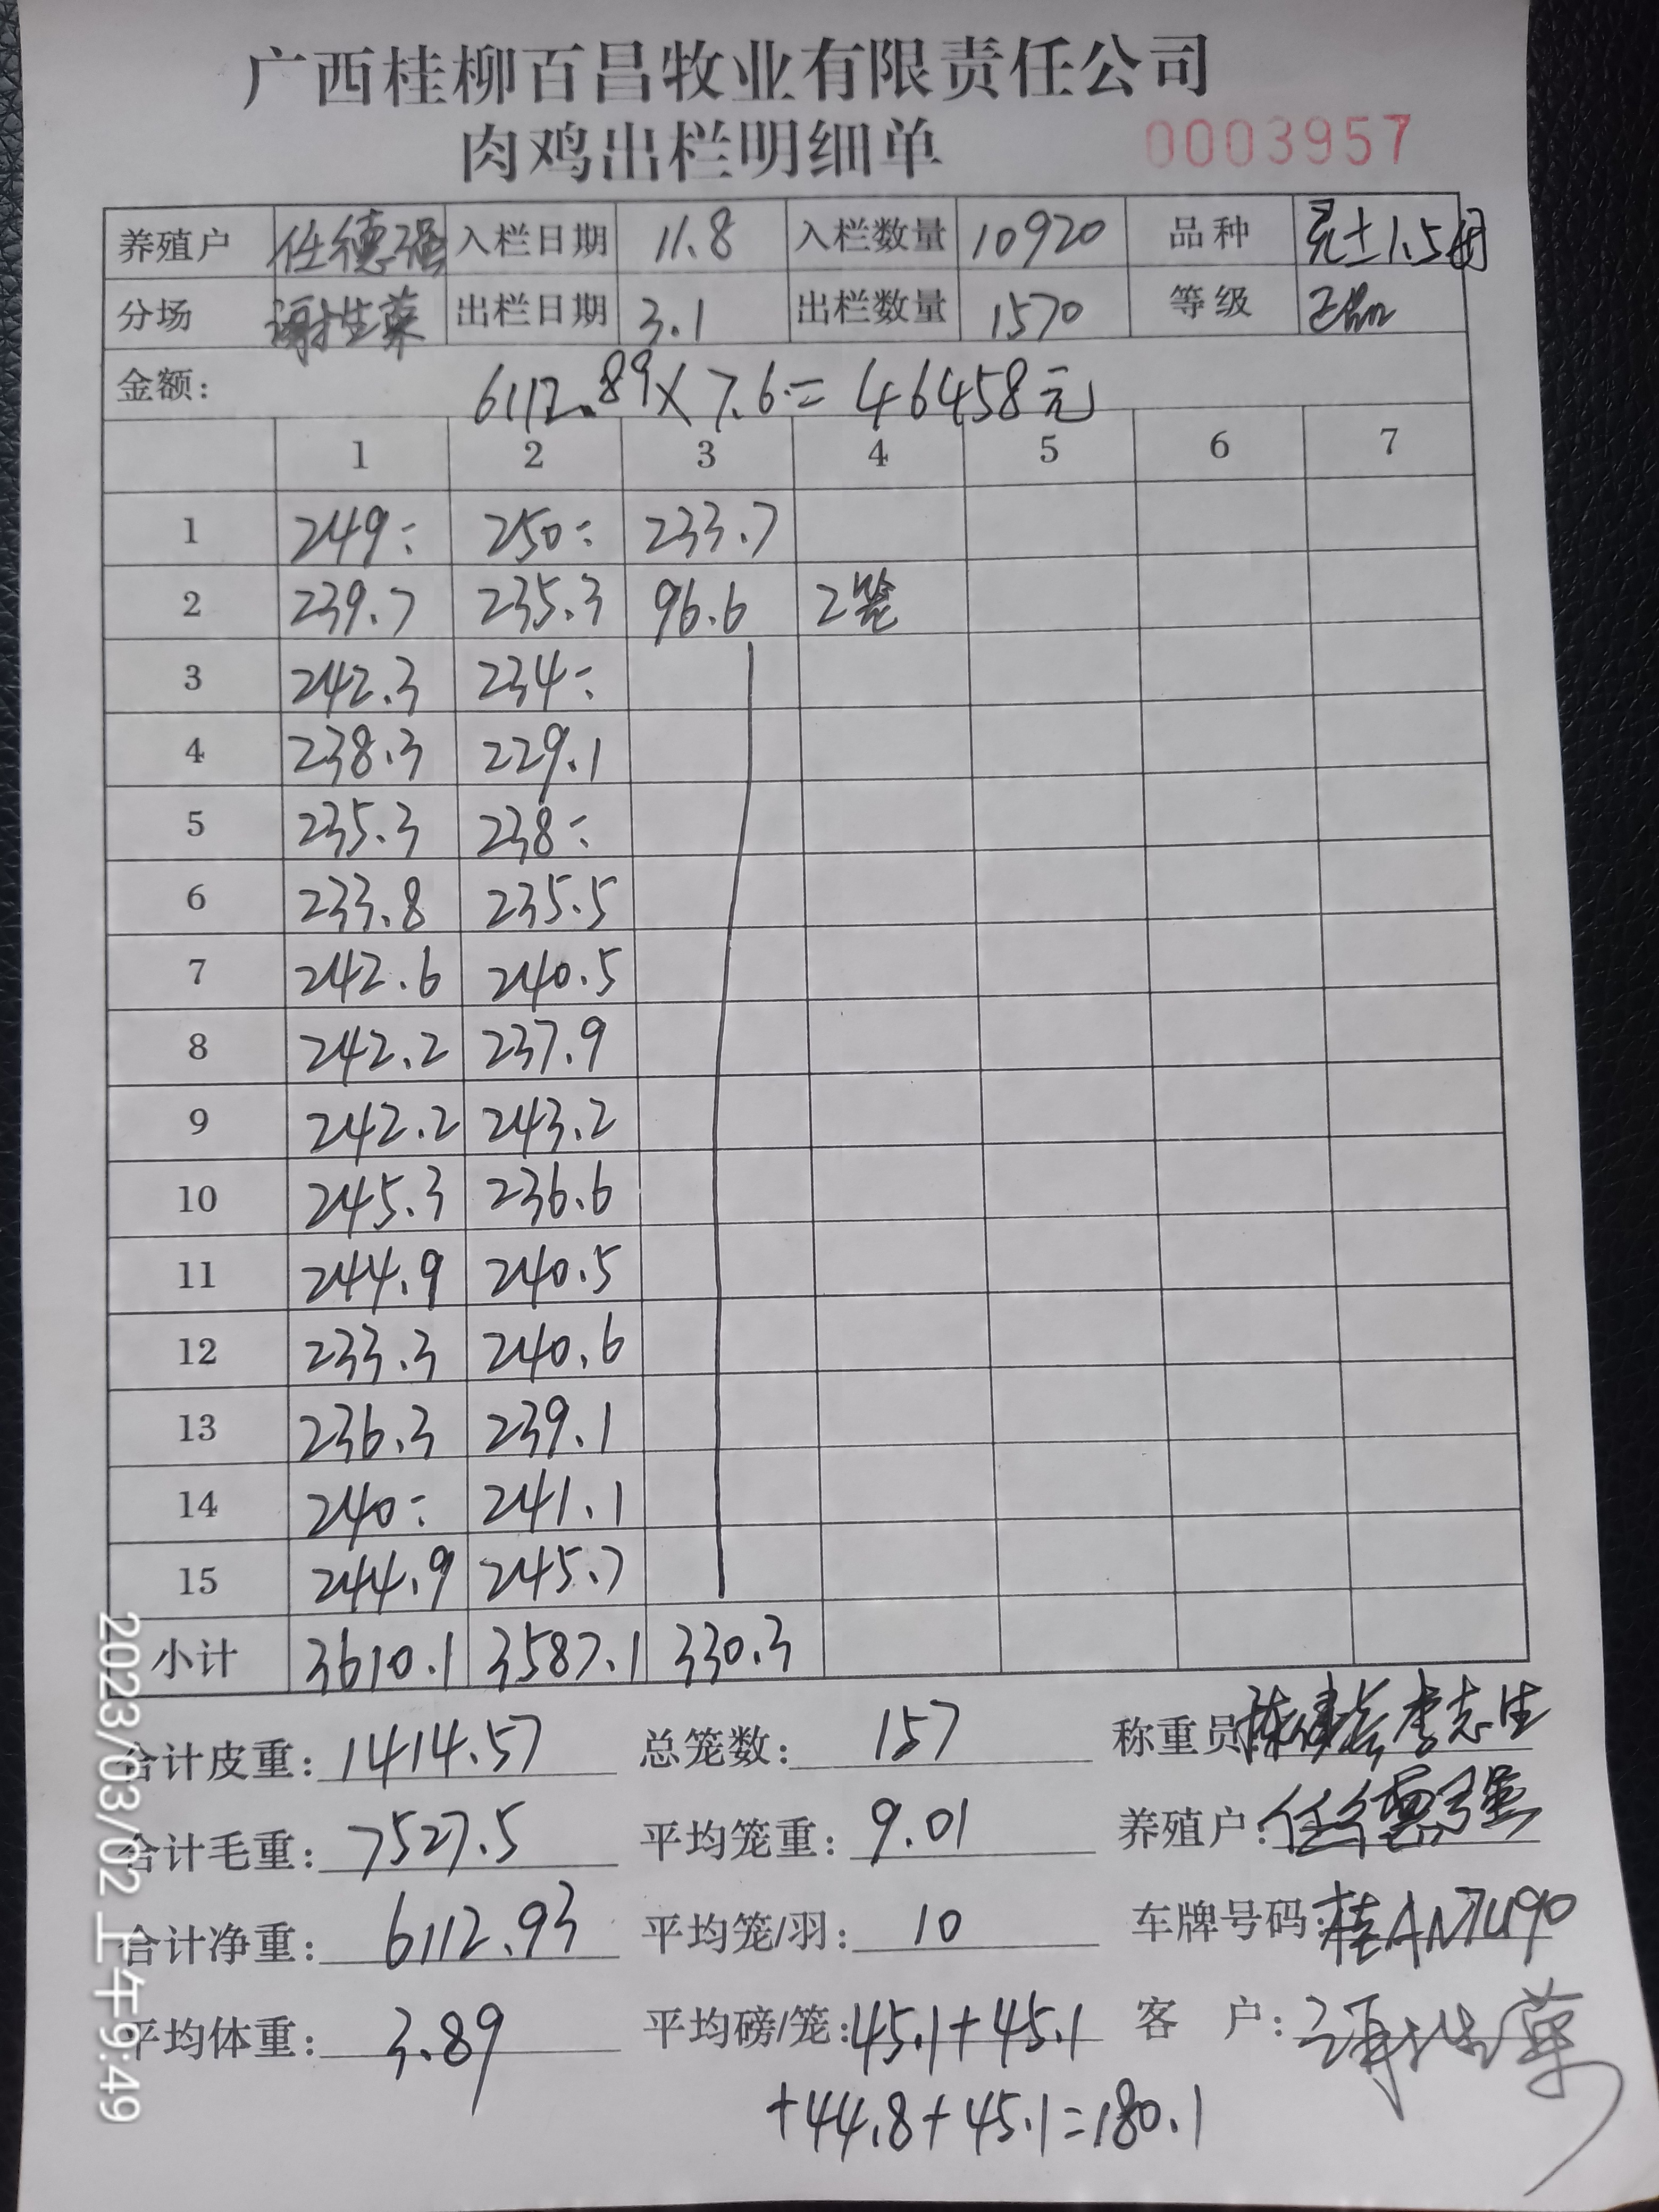 广西桂柳百昌牧业有限责任公司
肉鸡出栏明细单 0003957
养殖户 任德强 入栏日期 11.8 入栏数量 10920 品种 土1.5
分场 谢 出栏日期 3.1 出栏数量 1570 等级 正品
金额: 6112.89×7.6=46458元
1 2 3 4 5 6 7
1 249: 250: 233.7
2 239.7 235.3 96.6 2笼
3 242.3 234:
4 238.3 229.1
5 235.3 238:
6 233.8 235.5
7 242.6 240.5
8 242.2 237.9
9 242.2 243.2
10 245.3 236.6
11 244.9 240.5
12 233.3 240.6
13 236.3 239.1
14 240: 241.1
15 244.9 245.7
小计 3610.1 3587.1 330.3
合计皮重: 1414.57 总笼数: 157 称重员 李志生
合计毛重: 7527.5 平均笼重: 9.01 养殖户: 任德强
合计净重: 6112.93 平均笼/羽: 10 车牌号码: 桂AN7U90
平均体重: 3.89 平均磅/笼: 45.1+45.1 客户:
+44.8+45.1=180.1
2023/03/02 上午9:49